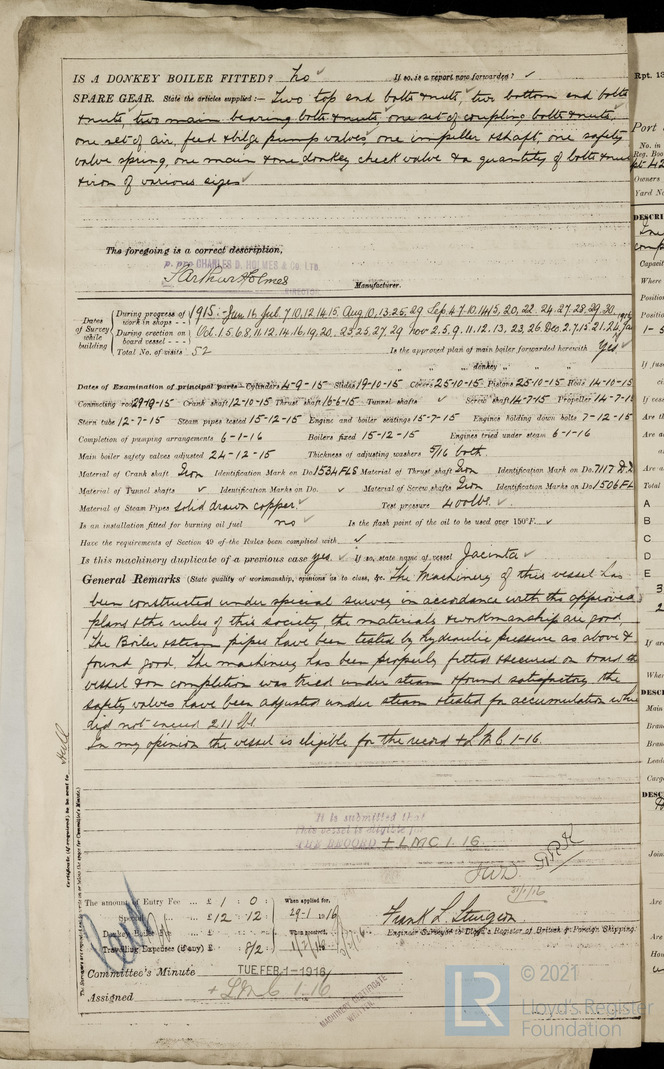 IS A DONKEY BOILER FITTED? No ✓ If so, is a report now forwarded? ✓
SPARE GEAR. State the articles supplied:— Two top end bolts & nuts, two bottom end bolts
& nuts, two main bearing bolts & nuts, one set of coupling bolts & nuts,
one set of air, feed & bilge pump valves, one impeller & shaft, one safety
valve spring, one main & one donkey check valve & a quantity of bolts & nuts
& iron of various sizes ✓
The foregoing is a correct description,
p. pro CHARLES D. HOLMES & Co. LTD.
Arthur Holmes
DIRECTOR
Manufacturer.
Dates of Survey while building
During progress of work in shops - - 1915:- Jan 16 Jul 7, 10, 12, 14, 15 Aug 10, 13, 25, 29 Sep 4, 7, 10, 14, 15, 20, 22, 24, 27, 28, 29, 30
1916
During erection on board vessel - - - Oct. 1, 5, 6, 8, 11, 12, 14, 16, 19, 20, 25, 27, 29 Nov 2, 5, 9, 11, 12, 13, 23, 26 Dec 2, 7, 15, 21, 24, Jan
Total No. of visits 52 Is the approved plan of main boiler forwarded herewith Yes ✓
" " " donkey " " "
Dates of Examination of principal parts—Cylinders 4-9-15 Slides 19-10-15 Covers 25-10-15 Pistons 25-10-15 Rods 14-10-15
Connecting rods 29-9-15 Crank shaft 12-10-15 Thrust shaft 16-6-15 Tunnel shafts ✓ Screw shaft 14-7-15 Propeller 14-7-15
Stern tube 12-7-15 Steam pipes tested 15-12-15 Engine and boiler seatings 15-7-15 Engines holding down bolts 7-12-15
Completion of pumping arrangements 6-1-16 Boilers fixed 15-12-15 Engines tried under steam 6-1-16
Main boiler safety valves adjusted 24-12-15 Thickness of adjusting washers 5/16 both
Material of Crank shaft Iron Identification Mark on Do. 1534 FLS Material of Thrust shaft Iron Identification Mark on Do. 7117
Material of Tunnel shafts ✓ Identification Marks on Do. ✓ Material of Screw shafts Iron Identification Marks on Do. 1506 FL
Material of Steam Pipes Solid drawn copper ✓ Test pressure 400 lbs. ✓
Is an installation fitted for burning oil fuel no ✓ Is the flash point of the oil to be used over 150°F. ✓
Have the requirements of Section 49 of the Rules been complied with ✓
Is this machinery duplicate of a previous case yes ✓ If so, state name of vessel Jacinta ✓
General Remarks (State quality of workmanship, opinions as to class, &c. The Machinery of this vessel has
been constructed under special survey in accordance with the approved
plans & the rules of this society, the materials & workmanship are good,
The Boiler & steam pipes have been tested by hydraulic pressure as above &
found good. The machinery has been properly fitted & secured on board the
vessel & on completion was tried under steam & found satisfactory the
safety valves have been adjusted under steam & tested for accumulation which
did not exceed 211 lbs
In my opinion the vessel is eligible for the record + L.M.C. 1-16.
It is submitted that
this vessel is eligible for
THE RECORD + LMC 1. 16.
JWD
Certificate (if required) to be sent to Hull
The amount of Entry Fee .. £ 1 : 0 : When applied for,
Special .. £ 12 : 12 : 29-1-1916
Donkey Boiler Fee .. £ : : When received,
Travelling Expenses (if any) £ : 8/2 : 1/2/16
Frank L. Sturgeon
Engineer Surveyor to Lloyd's Register of British & Foreign Shipping.
Committee's Minute TUE. FEB. 1 - 1916
Assigned + L.M.C. 1-16
MACHINERY CERTIFICATE
WRITTEN.
LR
© 2021
Lloyd's Register
Foundation
Rpt. 13
Port
No. in
Reg. Book
Owners
Yard No
DESCRI
Capacit
Where
Position
Positio
If fuse
Are th
Are a
Total
A
B
C
D
E
If ar
Wher
DESC
Main
Bran
Bran
Leads
Cargo
DESC
Join
Are
Are
How